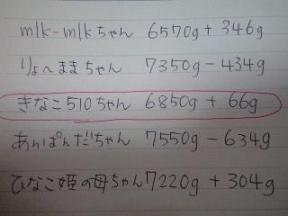 mlk-mlkちゃん 6570g + 346g
りょへままちゃん 7350g - 434g
きなこ510ちゃん 6850g + 66g
あんぱんだちゃん 7550g - 634g
ひなこ姫の母ちゃん 7220g + 304g